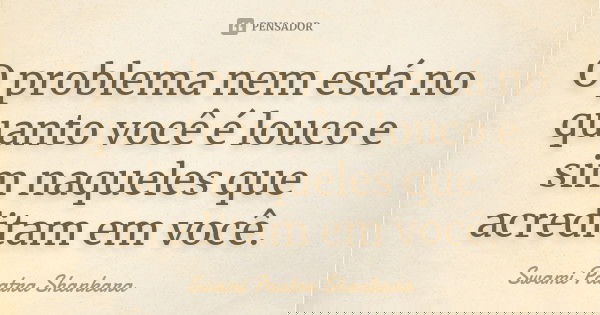 PENSADOR
O problema nem está no
quanto você é louco e
sim naqueles que
acreditam em você.
Swami Paatra Shankara